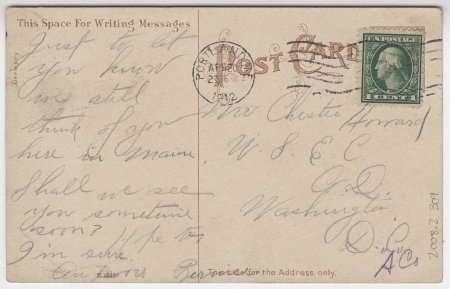 This Space For Writing Messages
Just to let
you know
we still
think of you
here in Maine
Shall we see
you sometime
soon? Hope to
I'm sure.
Germany
POST CARD
PORTLAND
APR
1912
U.S. POSTAGE
1 CENT 1
Mr Chester Howard
U. S. E. C.
G. D.
Washington
D. C.
"A" Co
This side for the Address only.
2008.2.309